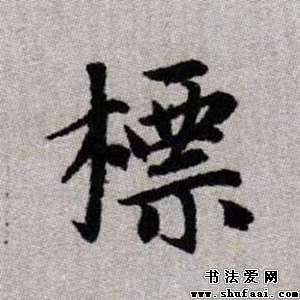 標
书法爱网
www.shufaai.com